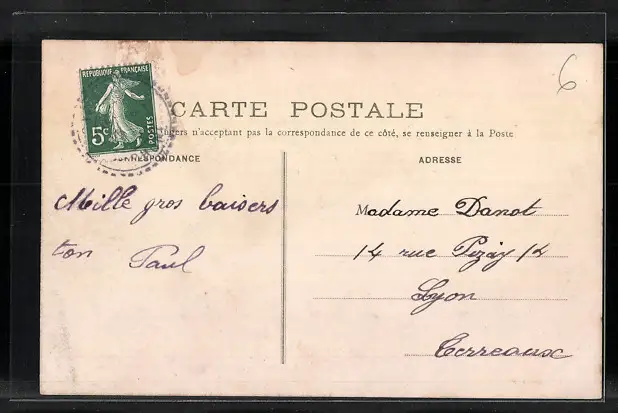 6
REPUBLIQUE FRANÇAISE
5c
POSTES
CARTE POSTALE
n'acceptant pas la correspondance de ce côté, se renseigner à la Poste
CORRESPONDANCE
ADRESSE
Mille gros baisers
ton Paul
Madame Danot
14 rue Pizay 14
Lyon
Terreaux